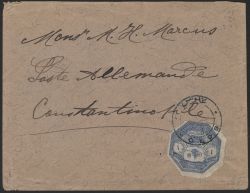 Monsr M. H. Marcus
Poste Allemande
Constantinople